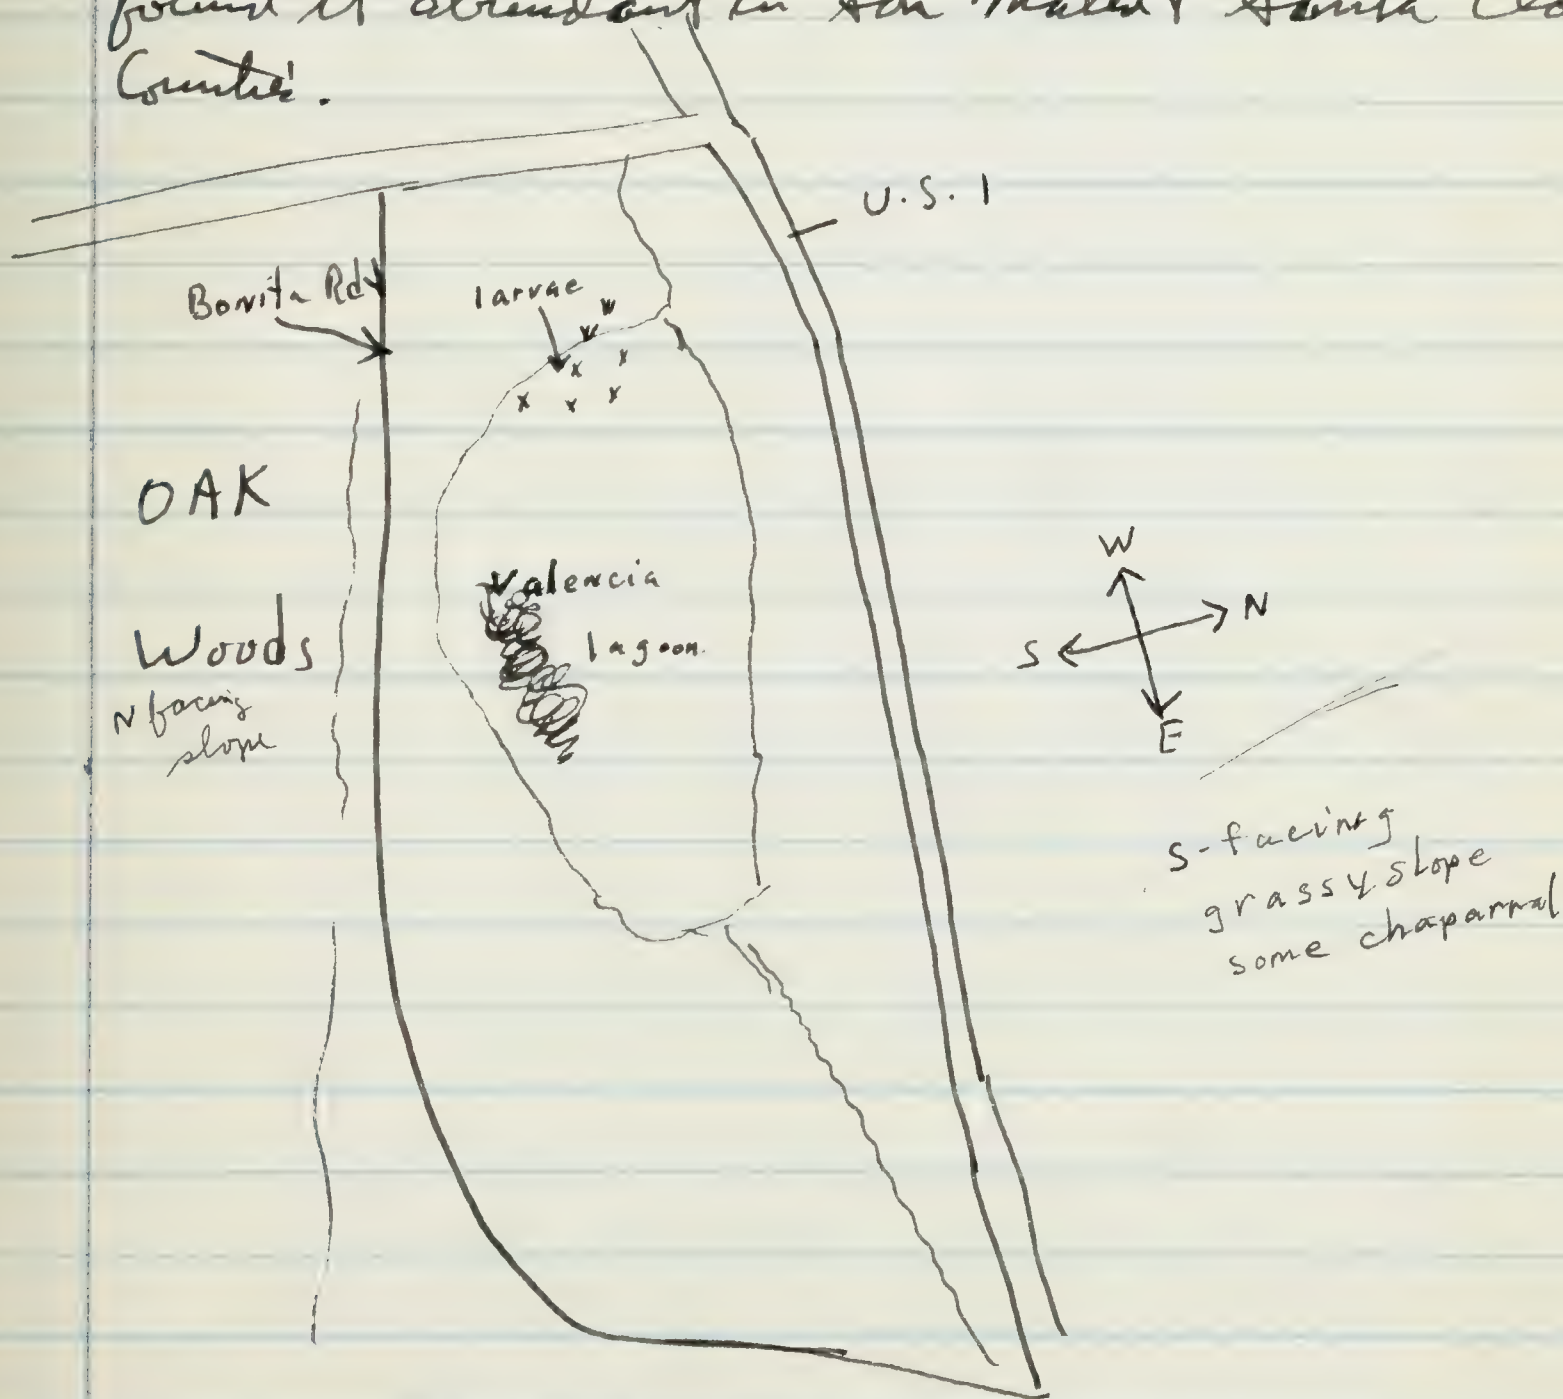 found it abundant in San Mateo & Santa
Counties.
U.S. 1
Bonita Rd
larvae
OAK
Woods
N facing
slope
Valencia
lagoon
W
N
S
E
S-facing
grassy slope
some chaparral